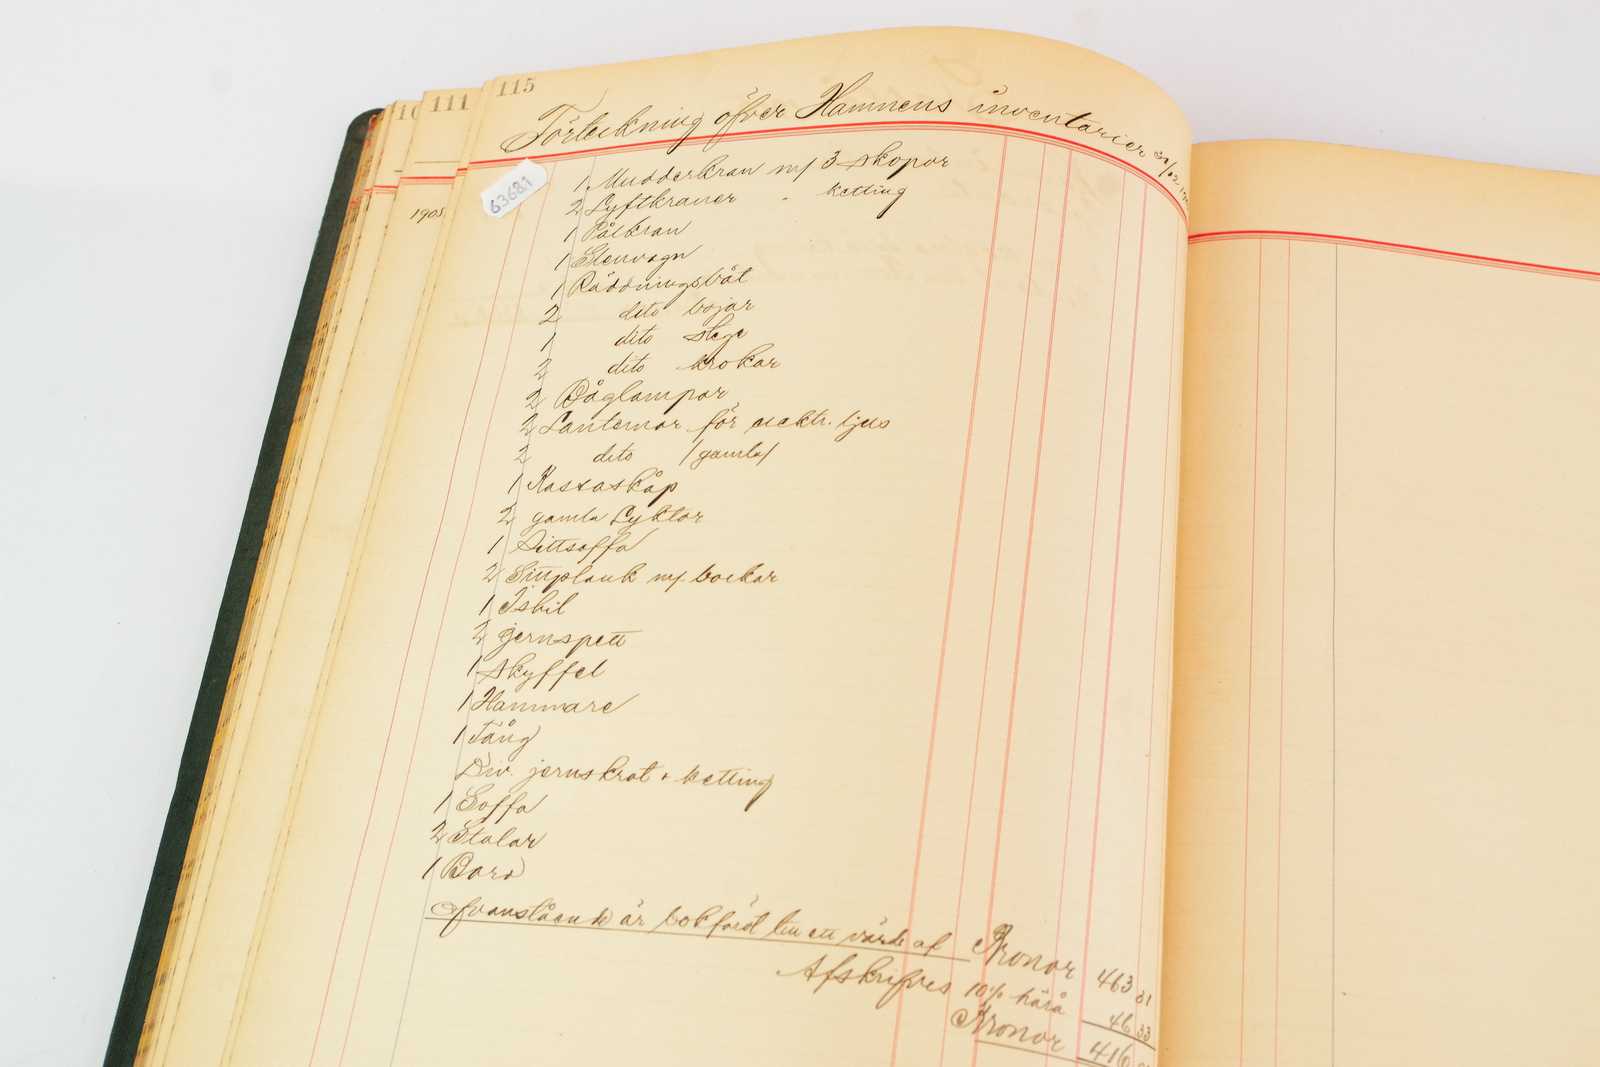 10
111
115
1905
63681
Förteckning öfver Hamnens inventarier 31/12
1 Mudderkran m/ 3 skopor
2 Lyftkranar " ketting
1 Pålkran
1 Stenvagn
1 Räddningsbåt
2 dito bojar
1 dito stege
2 dito krokar
2 Båglampor
2 Lanternor för elektr. ljus
2 dito /gamla/
1 Kassaskåp
2 gamla Lyktor
1 Sittsoffa
2 Sittplank m/ bockar
1 Isbil
2 jernspett
1 Skyffel
1 Hammare
1 Tång
Div. jernskrot + ketting
1 Soffa
2 Stolar
1 Bord
Ofvanstående är bokfördt till ett värde af Kronor 463 31
Afskrifves 10% härå 46 33
Kronor 416